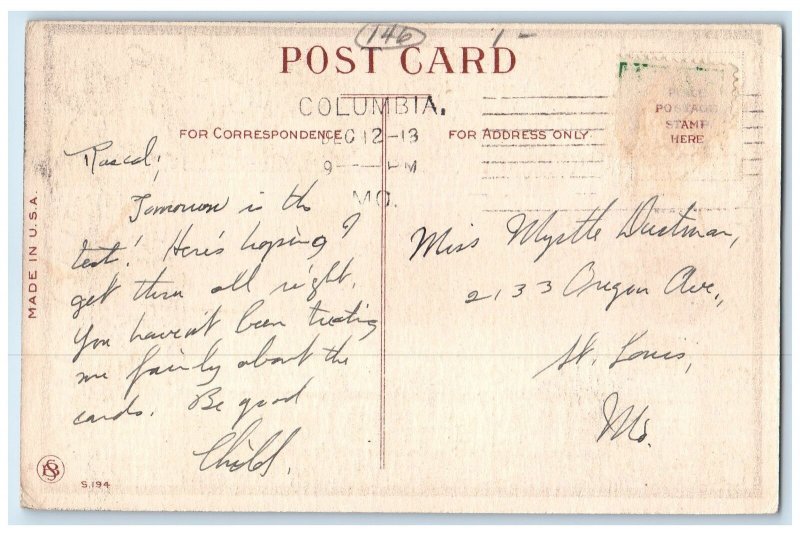 146
1-
POST CARD
COLUMBIA,
DEC 12-13
9 PM
MO.
FOR CORRESPONDENCE
FOR ADDRESS ONLY.
PLACE
POSTAGE
STAMP
HERE
MADE IN U.S.A.
Rascal;
Tomorrow is the
test! Here's hoping I
get thru all right.
You haven't been treating
me fairly about the
cards. Be good
Child.
Miss Myrtle Dustman,
2133 Oregon Ave.,
St. Louis,
Mo.
S.194